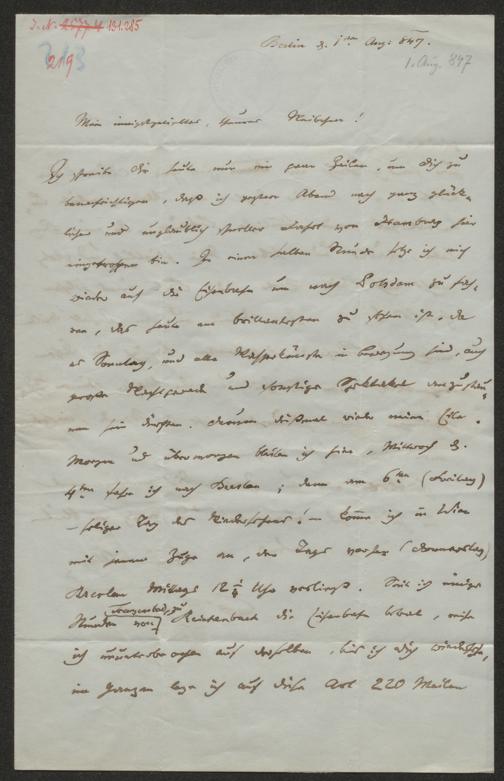 J. N. 2577 4 131.285
219
Berlin d. 1ten Aug: 847.
1. Aug. 847
Mein innigstgeliebter, theurer !
Ich schreibe Dir heute nur ein paar Zeilen, um Dich zu
benachrichtigen, daß ich gestern Abend nach ganz glück-
licher und unglaublich schneller Fahrt von Hamburg hier
eingetroffen bin. In einer halben Stunde setze ich mich
wieder auf die Eisenbahn um nach Potsdam zu fah-
ren, das heute am brillantesten zu sehen ist, da
es Sonntag, und alle Wasserkünste in Bewegung sind, auch
große und sonstiger Spektakel
Morgen und übermorgen bleibe ich hier, Mittwoch d.
4ten fahre ich nach Breslau; denn am 6ten (Freitag)
– seliger Tag des Wiedersehens! – komme ich in Wien
mit jenem Zuge an, der Tags vorher (Donnerstag)
Breslau Mittags 12 1/4 Uhr verläßt. Seit ich
Stunden die Eisenbahn , reise
ich ununterbrochen auf derselben, bis ich Dich wiedersehe,
im Ganzen lege ich auf diese Art 220 Meilen